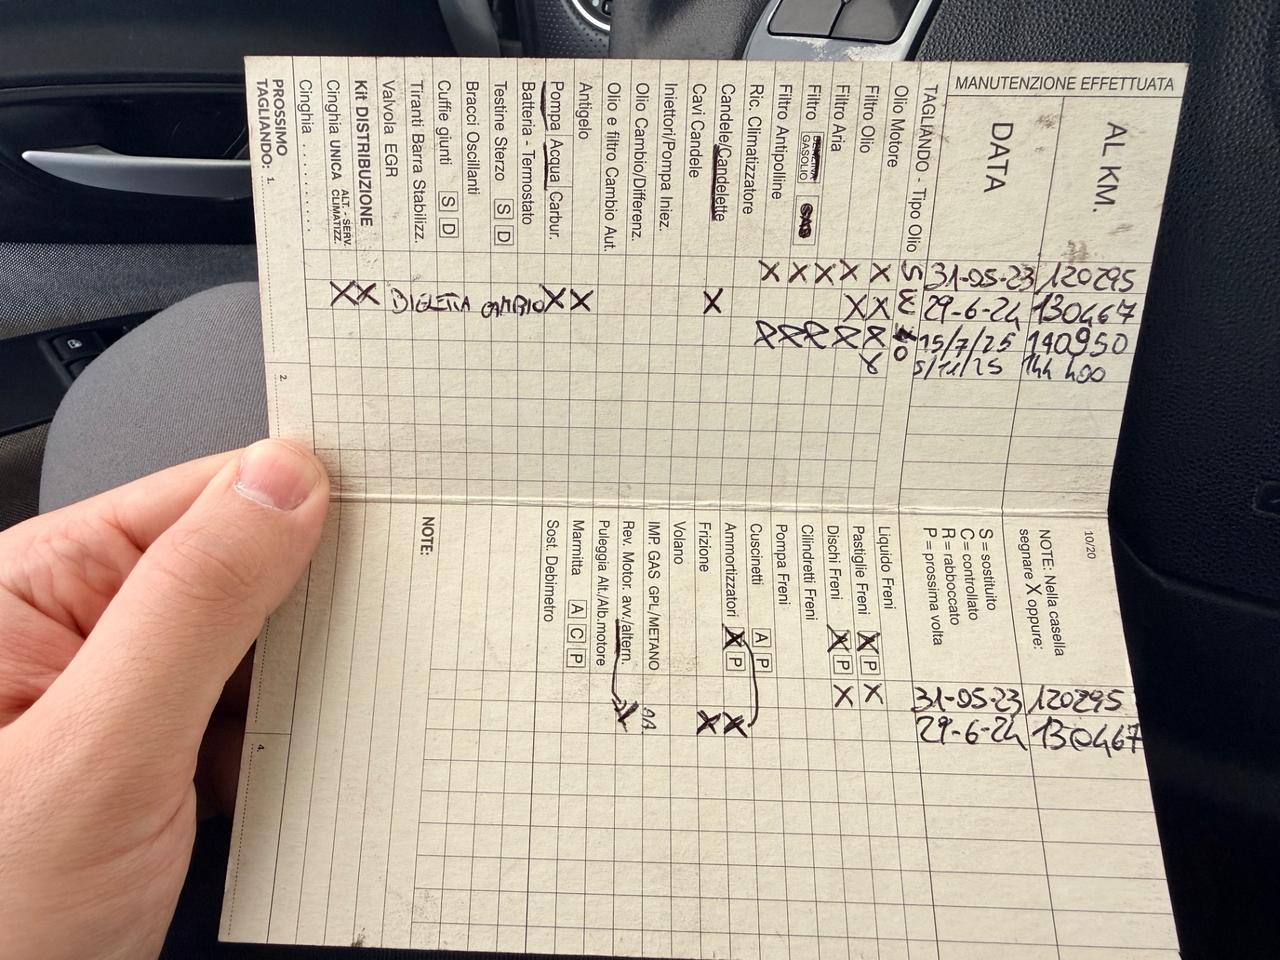 MANUTENZIONE EFFETTUATA
AL KM.
DATA
TAGLIANDO - Tipo Olio
Olio Motore
Filtro Olio
Filtro Aria
Filtro BENZINA GASOLIO GAS
Filtro Antipolline
Ric. Climatizzatore
Candele/Candelette
Cavi Candele
Iniettori/Pompa Iniez.
Olio Cambio/Differenz.
Olio e filtro Cambio Aut.
Antigelo
Pompa Acqua Carbur.
Batteria - Termostato
Testine Sterzo S D
Bracci Oscillanti
Cuffie giunti S D
Tiranti Barra Stabilizz.
Valvola EGR
Kit DISTRIBUZIONE
Cinghia UNICA ALT. - SERV. CLIMATIZZ.
Cinghia . . . . . . . . . .
PROSSIMO TAGLIANDO:
1.
2.
120295
31-05-23
X X X X X
130467
29-6-24
X X X X X BIELETTA CAMBIO X X
140950
15/7/25
X X X X X
144 400
5/11/25
X
10/20
NOTE: Nella casella
segnare X oppure:
S = sostituito
C = controllato
R = rabboccato
P = prossima volta
Liquido Freni
Pastiglie Freni X P
Dischi Freni X P
Cilindretti Freni
Pompa Freni
Cuscinetti A P
Ammortizzatori X P
Frizione
Volano
IMP. GAS GPL/METANO
Rev. Motor. avv./altern.
Puleggia Alt./Alb.motore
Marmitta A C P
Sost. Debimetro
NOTE:
4.
120295
31-05-23
X X
130467
29-6-24
X X X